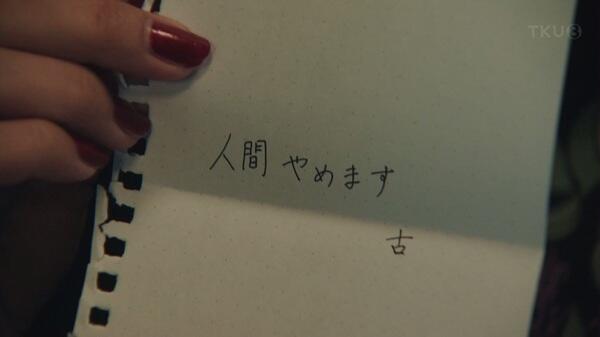 TKU8
人間やめます
古